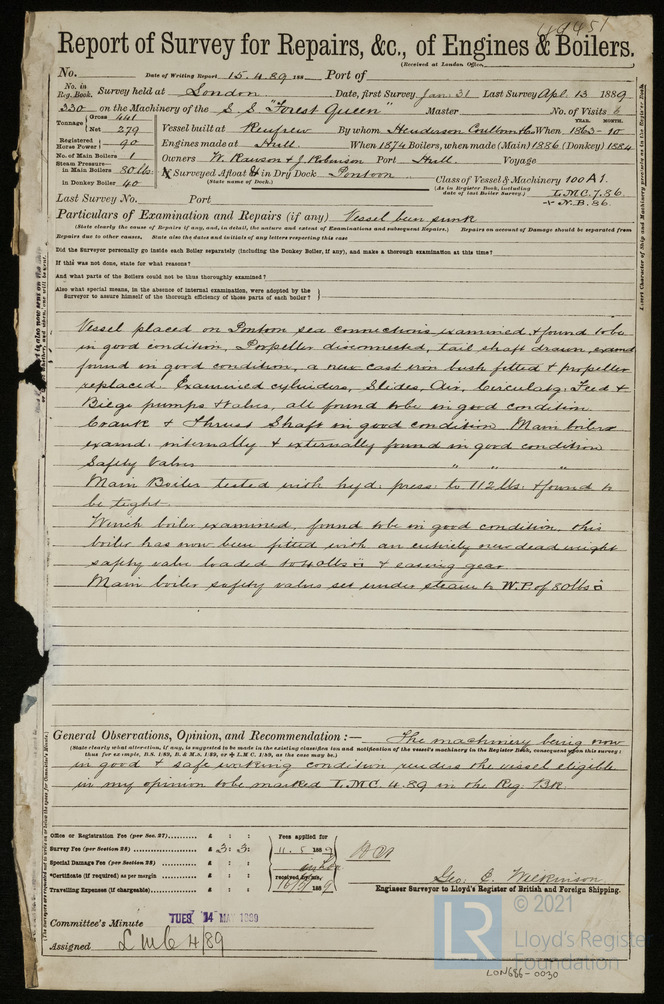 49451
Report of Survey for Repairs, &c., of Engines & Boilers.
(Received at London Office,
No. Date of Writing Report 15.4.89 188 Port of
No. in Reg. Book. Survey held at London Date, first Survey Jan. 31 Last Survey Apl. 13 1889
330 on the Machinery of the S.S. "Forest Queen" Master No. of Visits 6
Tonnage Gross 441 Net 279
Vessel built at Renfrew By whom Henderson Coulborn & Co When 1863-10
YEAR. MONTH.
Registered Horse Power 90
Engines made at Hull. When 1874 Boilers, when made (Main) 1886 (Donkey) 1884
No. of Main Boilers 1
Owners W. Rawson & J. Robinson Port Hull. Voyage
Steam Pressure in Main Boilers 80 lbs.
in Donkey Boiler 40
Surveyed Afloat & in Dry Dock Pontoon
(State name of Dock.)
Class of Vessel & Machinery 100A1.
(As in Register Book, including date of last Boiler Survey.) L.M.C. 7.86.
+ N.B. 86.
Last Survey No. Port
Particulars of Examination and Repairs (if any) Vessel been sunk
(State clearly the cause of Repairs if any, and, in detail, the nature and extent of Examinations and subsequent Repairs.) Repairs on account of Damage should be separated from
Repairs due to other causes. State also the dates and initials of any letters respecting this case
Did the Surveyor personally go inside each Boiler separately (including the Donkey Boiler, if any), and make a thorough examination at this time?
If this was not done, state for what reasons?
And what parts of the Boilers could not be thus thoroughly examined?
Also what special means, in the absence of internal examination, were adopted by the
Surveyor to assure himself of the thorough efficiency of those parts of each boiler?
Vessel placed on Pontoon sea connections examined & found to be
in good condition, Propeller disconnected, tail shaft drawn, examd
found in good condition, a new cast iron bush fitted & propeller
replaced. Examined cylinders, Slides, Air, Circulatg: Feed &
Bilge pumps & valves, all found to be in good condition
Crank & Thrust Shaft in good condition Main boilers
examd: internally & externally found in good condition
Safety Valves " " "
Main Boiler tested with hyd: press: to 112 lbs. & found to
be tight.
Winch boiler examined, found to be in good condition, this
boiler has now been fitted with an entirely new dead weight
safety valve loaded to 40 lbs □ & easing gear.
Main boiler safety valves set under steam to W.P. of 80 lbs □
General Observations, Opinion, and Recommendation :— The machinery being now
(State clearly what alteration, if any, is suggested to be made in the existing classification and notification of the vessel's machinery in the Register Book, consequent upon this survey;
thus for example, B.S. 1/89, B. & M.S. 1/89, or + L.M.C. 1/89, as the case may be.)
in good & safe working condition, renders the vessel eligible
in my opinion to be marked L.M.C. 4.89 in the Reg. Bk.
Office or Registration Fee (per Sec. 27) £ : :
Survey Fee (per Section 28) £ 3 : 3 :
Special Damage Fee (per Section 28) £ : :
*Certificate (if required) as per margin £ : :
Travelling Expenses (if chargeable) £ : :
Fees applied for
11. 5 1889
received by me,
1889
Geo. E. Wilkinson
Engineer Surveyor to Lloyd's Register of British and Foreign Shipping.
Committee's Minute TUES 14 MAY 1889
Assigned LMC 4/89
LR
© 2021
Lloyd's Register
Foundation
LON686-0030